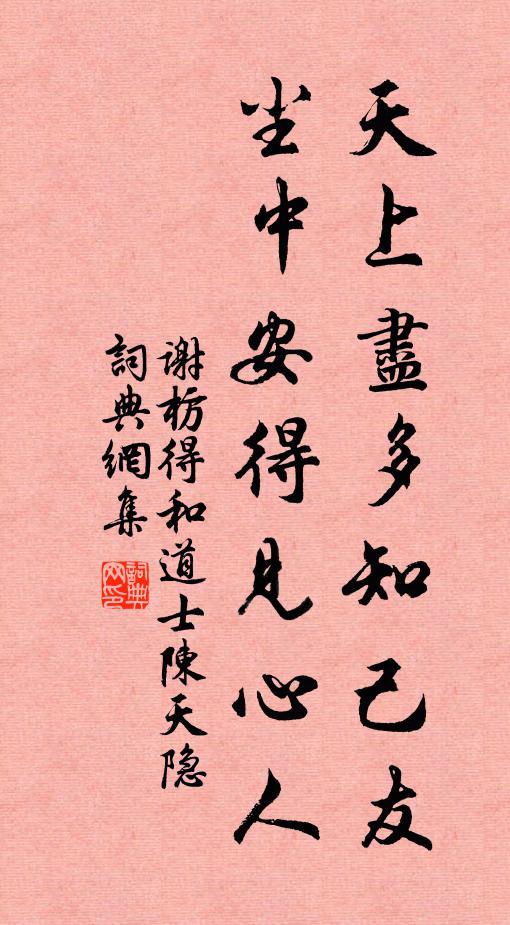 天上盡多知己友
尘中安得見心人
谢枋得和道士陳天隐
詞典網集
詞典
网印